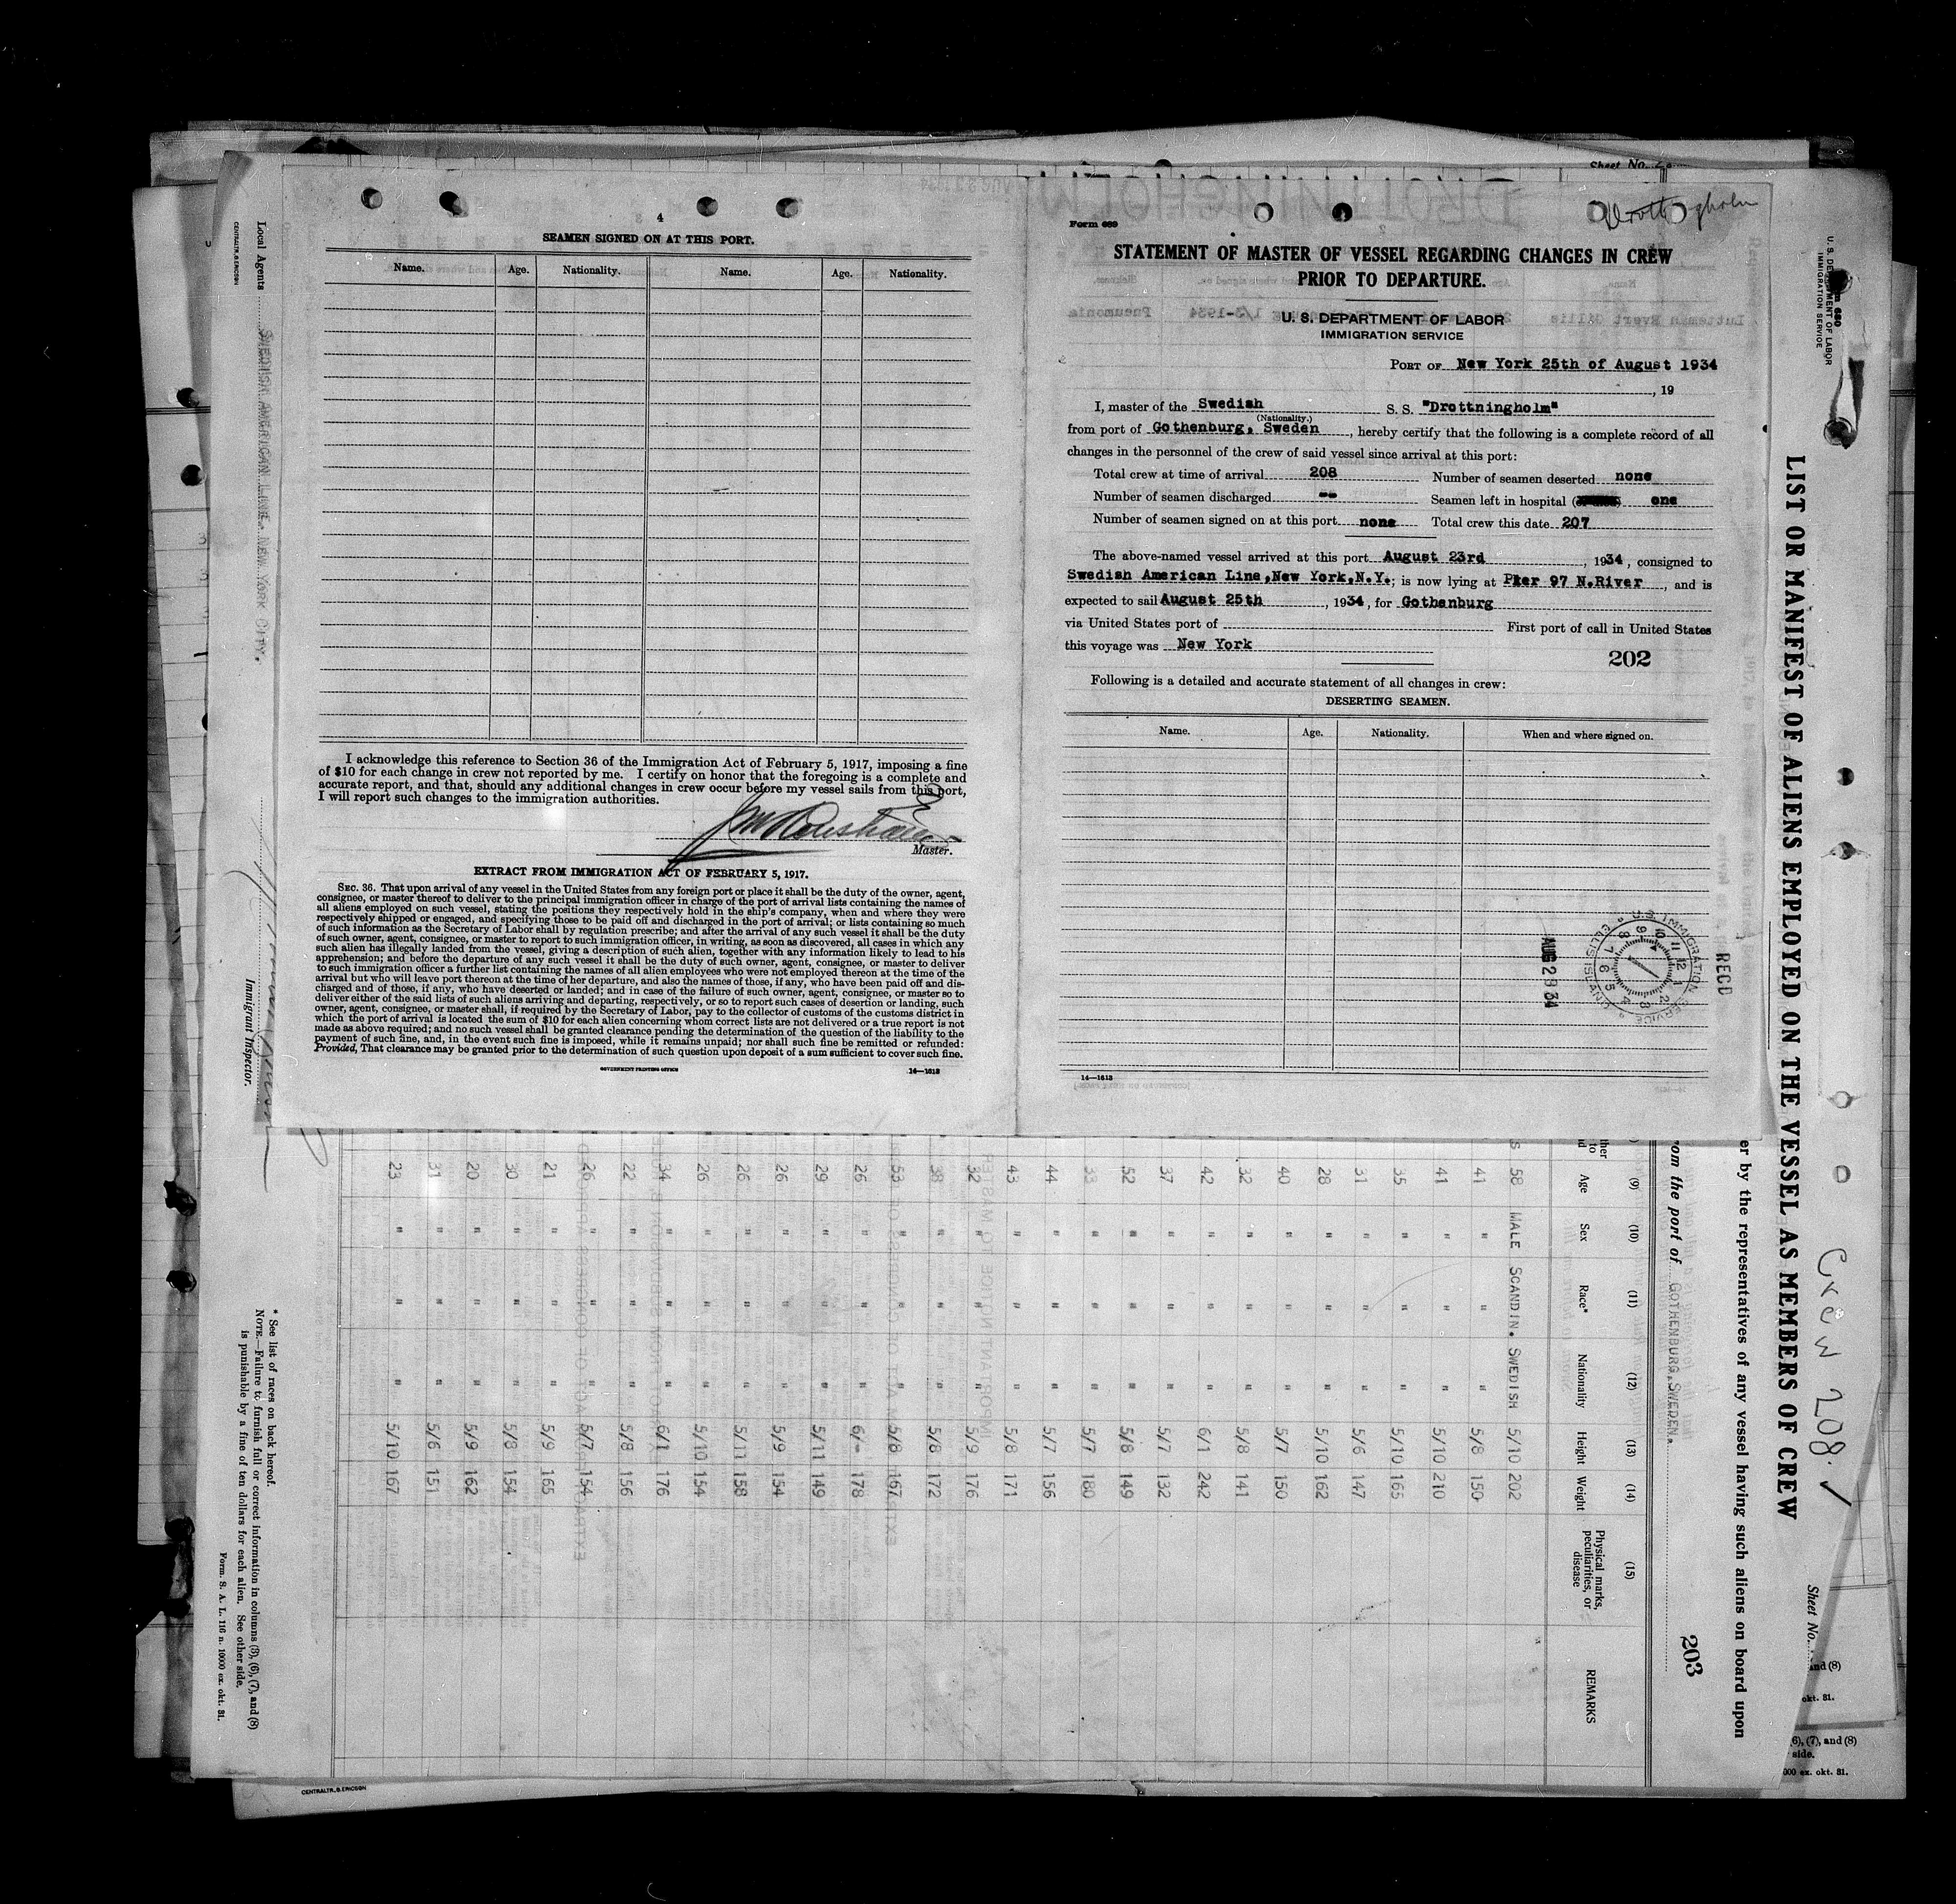 4
SEAMEN SIGNED ON AT THIS PORT.
Name. Age. Nationality. Name. Age. Nationality.
I acknowledge this reference to Section 36 of the Immigration Act of February 5, 1917, imposing a fine
of $10 for each change in crew not reported by me. I certify on honor that the foregoing is a complete and
accurate report, and that, should any additional changes in crew occur before my vessel sails from this port,
I will report such changes to the immigration authorities.
Master.
EXTRACT FROM IMMIGRATION ACT OF FEBRUARY 5, 1917.
SEC. 36. That upon arrival of any vessel in the United States from any foreign port or place it shall be the duty of the owner, agent,
consignee, or master thereof to deliver to the principal immigration officer in charge of the port of arrival lists containing the names of
all aliens employed on such vessel, stating the positions they respectively hold in the ship's company, when and where they were
respectively shipped or engaged, and specifying those to be paid off and discharged in the port of arrival; or lists containing so much
of such information as the Secretary of Labor shall by regulation prescribe; and after the arrival of any such vessel it shall be the duty
of such owner, agent, consignee, or master to report to such immigration officer, in writing, as soon as discovered, all cases in which any
such alien has illegally landed from the vessel, giving a description of such alien, together with any information likely to lead to his
apprehension; and before the departure of any such vessel it shall be the duty of such owner, agent, consignee, or master to deliver
to such immigration officer a further list containing the names of all alien employees who were not employed thereon at the time of the
arrival but who will leave port thereon at the time of her departure, and also the names of those, if any, who have been paid off and dis-
charged and of those, if any, who have deserted or landed; and in case of the failure of such owner, agent, consignee, or master so to
deliver either of the said lists of such aliens arriving and departing, respectively, or so to report such cases of desertion or landing, such
owner, agent, consignee, or master shall, if required by the Secretary of Labor, pay to the collector of customs of the customs district in
which the port of arrival is located the sum of $10 for each alien concerning whom correct lists are not delivered or a true report is not
made as above required; and no such vessel shall be granted clearance pending the determination of the question of the liability to the
payment of such fine, and, in the event such fine is imposed, while it remains unpaid; nor shall such fine be remitted or refunded:
Provided, That clearance may be granted prior to the determination of such question upon deposit of a sum sufficient to cover such fine.
GOVERNMENT PRINTING OFFICE 14—1613
Drottningholm
Form 689
STATEMENT OF MASTER OF VESSEL REGARDING CHANGES IN CREW
PRIOR TO DEPARTURE.
U. S. DEPARTMENT OF LABOR
IMMIGRATION SERVICE
PORT OF New York 25th of August 1934
, 19
I, master of the Swedish S. S. "Drottningholm"
(Nationality.)
from port of Gothenburg, Sweden, hereby certify that the following is a complete record of all
changes in the personnel of the crew of said vessel since arrival at this port:
Total crew at time of arrival 208 Number of seamen deserted none
Number of seamen discharged -- Seamen left in hospital one
Number of seamen signed on at this port none Total crew this date 207
The above-named vessel arrived at this port August 23rd, 1934, consigned to
Swedish American Line, New York, N.Y.; is now lying at Pier 97 N.River, and is
expected to sail August 25th, 1934, for Gothenburg
via United States port of First port of call in United States
this voyage was New York
202
Following is a detailed and accurate statement of all changes in crew:
DESERTING SEAMEN.
Name. Age. Nationality. When and where signed on.
RECD
U.S. IMMIGRATION SERVICE ELLIS ISLAND
14—1613
Sheet No.
U. S. DEPARTMENT OF LABOR
IMMIGRATION SERVICE
LIST OR MANIFEST OF ALIENS EMPLOYED ON THE VESSEL AS MEMBERS OF CREW
Crew 208 ✓
Sheet No.
er by the representatives of any vessel having such aliens on board upon
from the port of GOTHENBURG, SWEDEN.
203
(9) (10) (11) (12) (13) (14) (15)
Age Sex Race* Nationality Height Weight Physical marks, peculiarities, or disease REMARKS
58 MALE SCANDIN. SWEDISH 5/10 202
41 " " " 5/8 150
41 " " " 5/10 210
35 " " " 5/10 165
31 " " " 5/6 147
28 " " " 5/10 162
40 " " " 5/7 150
32 " " " 5/8 141
42 " " " 6/1 242
37 " " " 5/7 132
52 " " " 5/8 149
33 " " " 5/7 180
44 " " " 5/7 156
43 " " " 5/8 171
32 " " " 5/9 176
38 " " " 5/8 172
53 " " " 5/8 167
26 " " " 6/- 178
29 " " " 5/11 149
26 " " " 5/9 154
26 " " " 5/11 158
26 " " " 5/10 154
34 " " " 6/1 176
22 " " " 5/8 156
26 " " " 5/7 154
21 " " " 5/9 165
30 " " " 5/8 154
20 " " " 5/9 162
31 " " " 5/6 151
23 " " " 5/10 167
* See list of races on back hereof.
NOTE.—Failure to furnish full or correct information in columns (3), (6), (7), and (8)
is punishable by a fine of ten dollars for each alien. See other side.
Form. S. A. L. 116 n. 10000 ex. okt. 31.
Local Agents SWEDISH AMERICAN LINE, NEW YORK CITY.
Immigrant Inspector.
CENTRALTR. B. ERICSON
CENTRALTR. B. ERICSON
and (8)
okt. 31.
6), (7), and (8)
side.
000 ex. okt. 31.